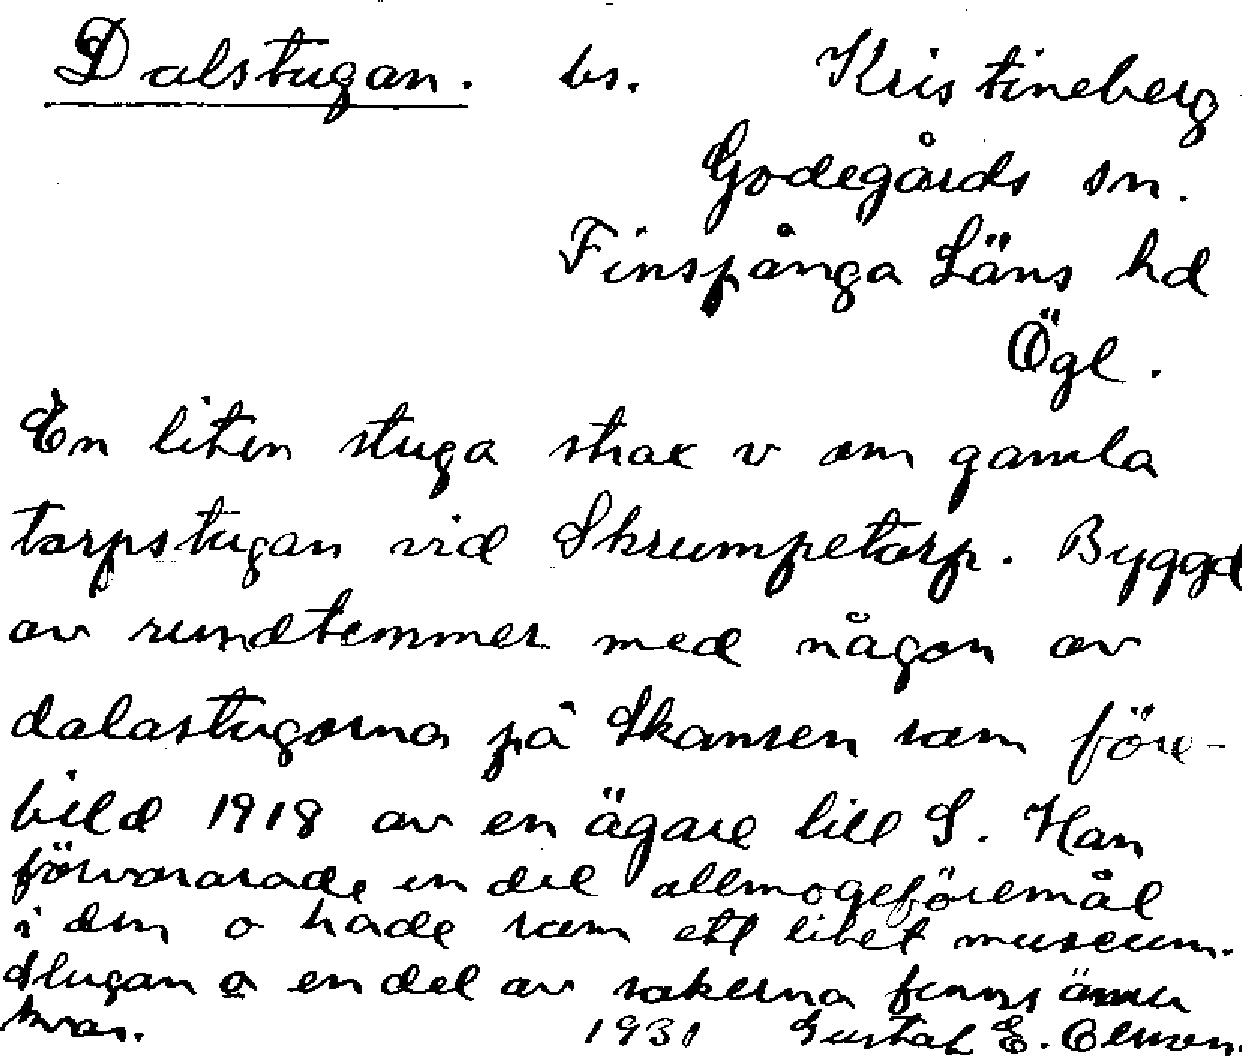 Dalstugan. bs. Kristineberg
Godegårds sn.
Finspånga Läns hd
Ögl.
En liten stuga strax v om gamla
torpstugan vid Skrumpetorp. Byggd
av rundtemmer med någon av
dalastugorna på Skansen som före-
bild 1918 av en ägare till S. Han
förvararade en del allmogeföremål
i den o hade som ett litet museum.
Stugan o en del av sakerna finns ännu
kvar. 1931 Gustaf E.